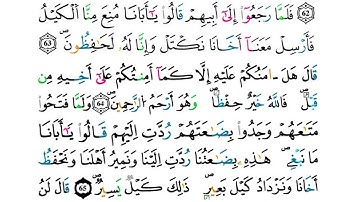 ٦٢ فَلَمَّا رَجَعُوٓا۟ إِلَىٰٓ أَبِيهِمْ قَالُوا۟ يَٰٓأَبَانَا مُنِعَ مِنَّا ٱلْكَيْلُ
فَأَرْسِلْ مَعَنَآ أَخَانَا نَكْتَلْ وَإِنَّا لَهُۥ لَحَٰفِظُونَ ٦٣
قَالَ هَلْ ءَامَنُكُمْ عَلَيْهِ إِلَّا كَمَآ أَمِنتُكُمْ عَلَىٰٓ أَخِيهِ مِن
قَبْلُ ۖ فَٱللَّهُ خَيْرٌ حَٰفِظًا ۖ وَهُوَ أَرْحَمُ ٱلرَّٰحِمِينَ ٦٤ وَلَمَّا فَتَحُوا۟
مَتَٰعَهُمْ وَجَدُوا۟ بِضَٰعَتَهُمْ رُدَّتْ إِلَيْهِمْ ۖ قَالُوا۟ يَٰٓأَبَانَا
مَا نَبْغِى ۖ هَٰذِهِۦ بِضَٰعَتُنَا رُدَّتْ إِلَيْنَا ۖ وَنَمِيرُ أَهْلَنَا وَنَحْفَظُ
أَخَانَا وَنَزْدَادُ كَيْلَ بَعِيرٍ ۖ ذَٰلِكَ كَيْلٌ يَسِيرٌ ٦٥ قَالَ لَنْ